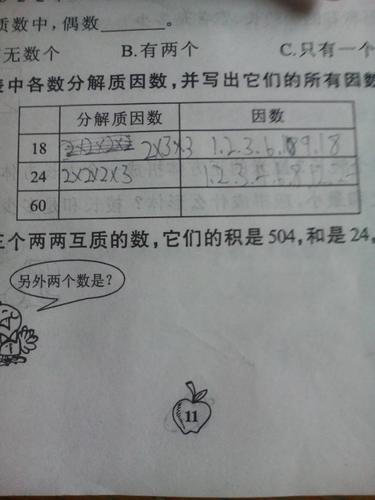 质数中，偶数______。
无数个 B.有两个 C.只有一个
中各数分解质因数，并写出它们的所有因数
分解质因数 因数
18 2×3×3 1.2.3.6.9.18
24 2×2×2×3 1.2.3.
60
三个两两互质的数，它们的积是504，和是24，
另外两个数是？
11